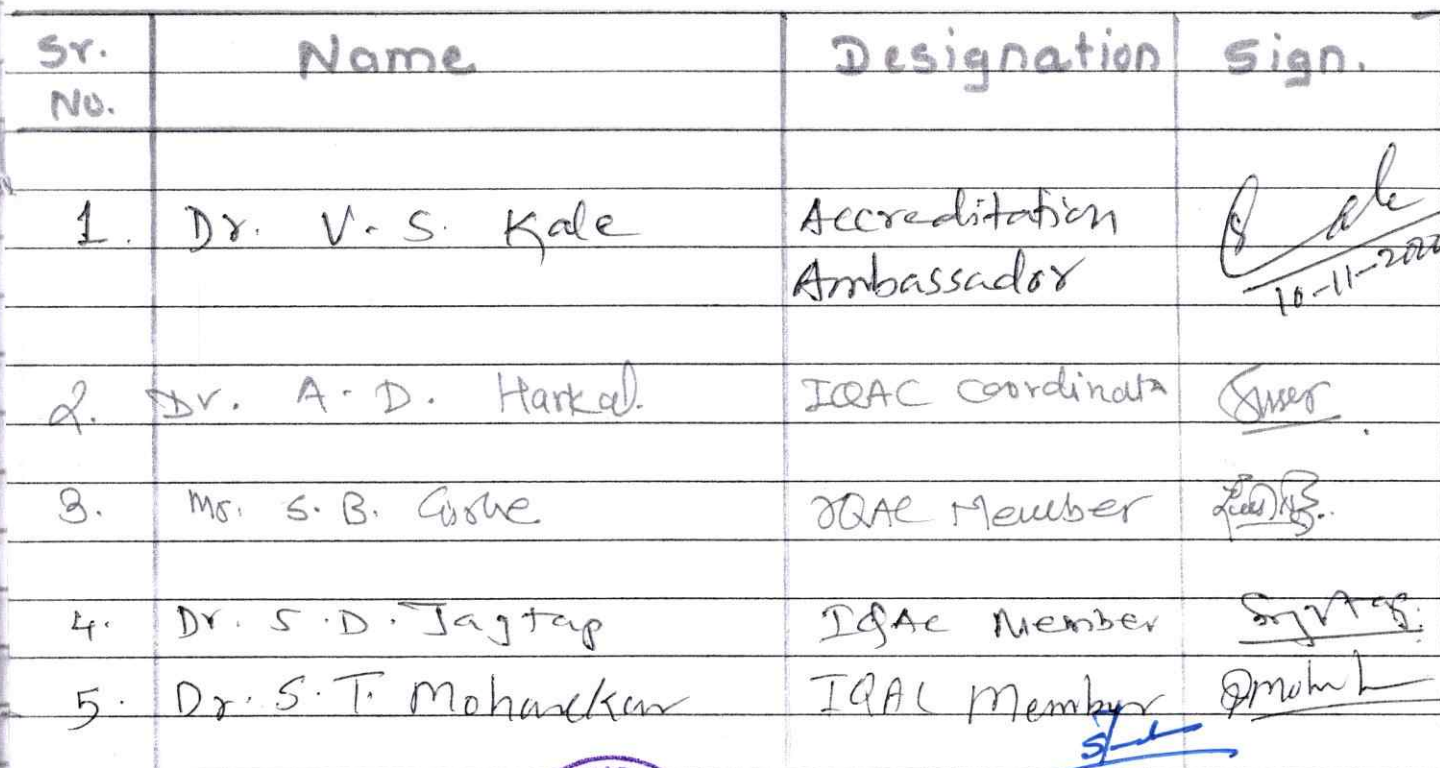 Sr. Name Designation Sign.
No.
1. Dr. V. S. Kale Accreditation
Ambassador
10-11-2022
2. Dr. A. D. Harkal. IQAC Coordinator
3. Mr. S. B. IQAC Member
4. Dr. S. D. Jagtap IQAC Member
5. Dr. S. T. IQAC Member